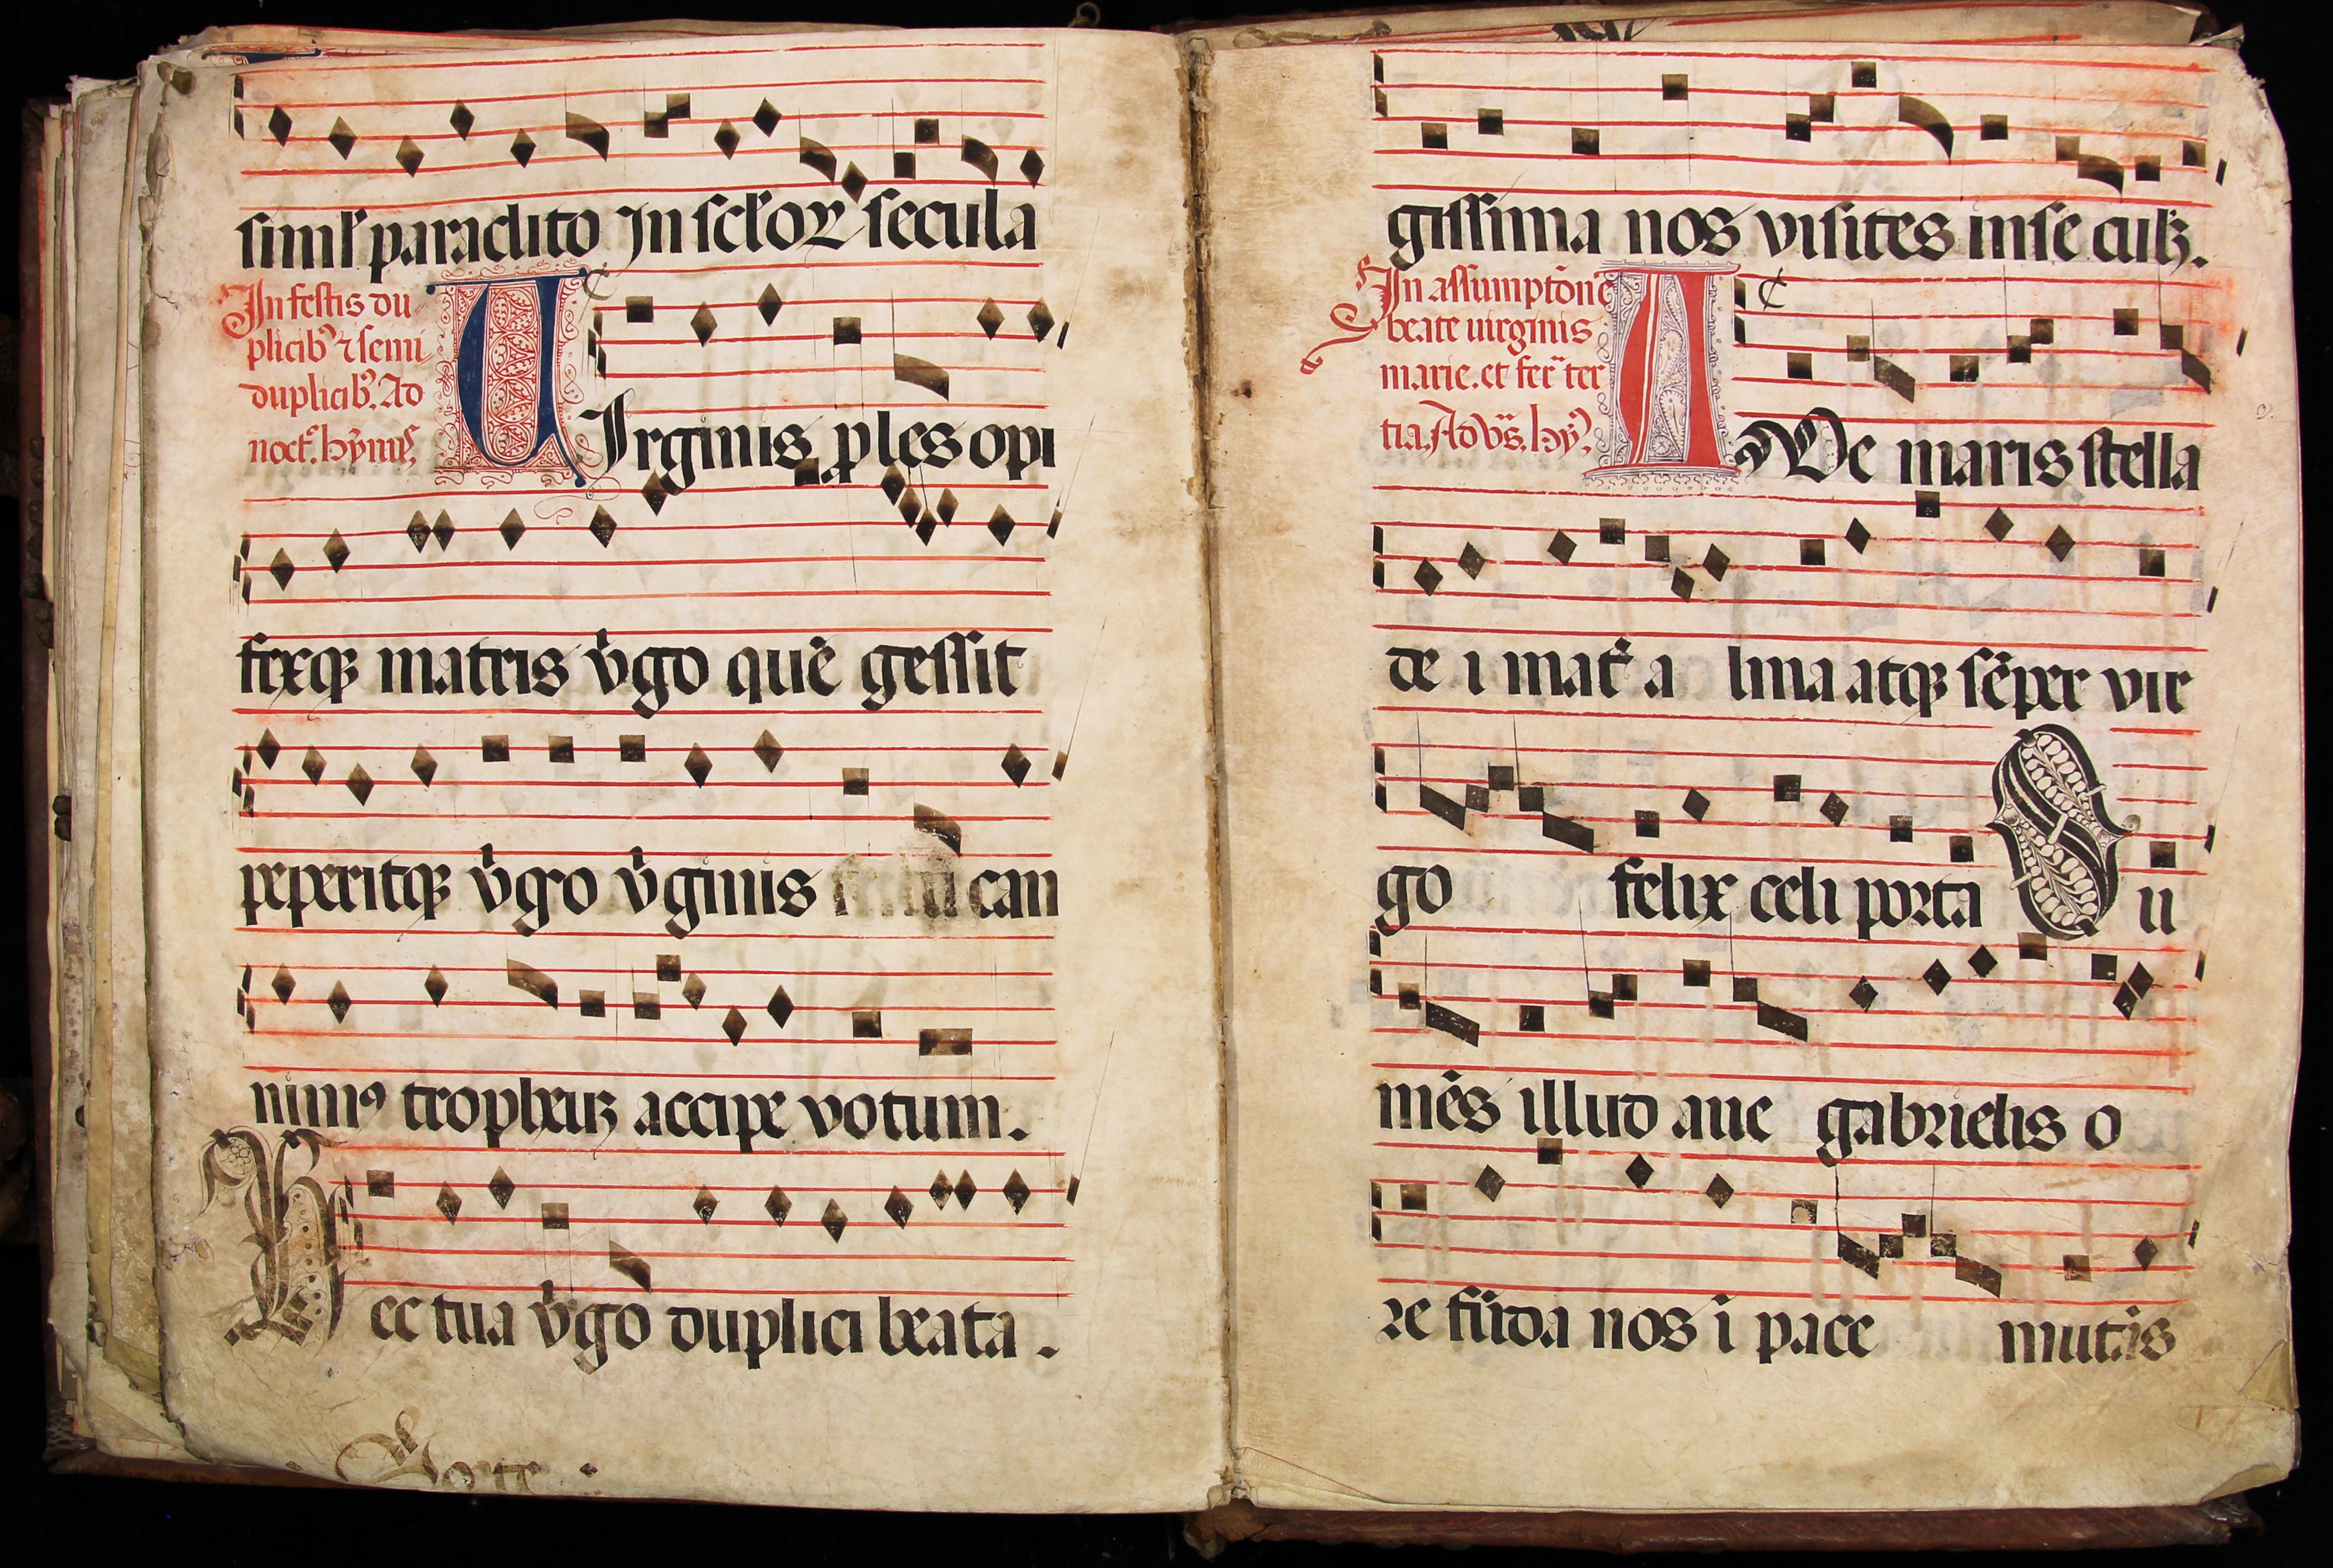 simlʼ paraclito In sclʼoꝝ secula
In festis du-
plicibꝰ ⁊ semi
duplicibꝰ. Ad
noctʼ. hȳnus
UIrginis ꝓles opi
fexqꝫ matris v̓go quē gessit
peperitqꝫ v̓go v̓ginis can
nimꝰ tropheuꝫ accipe votum.
Hec tua v̓go duplici beata.
gissima nos visites in se culꝫ.
In assumptōne
beate uirginis
marie. et fer̄ ter
tia. Ad vs̄. hȳ.
AVe maris stella
de i mat̓ a lma atqꝫ sēper vir
go felix celi porta Su
mēs illud aue gabrielis o
re fūda nos ī pace mutās